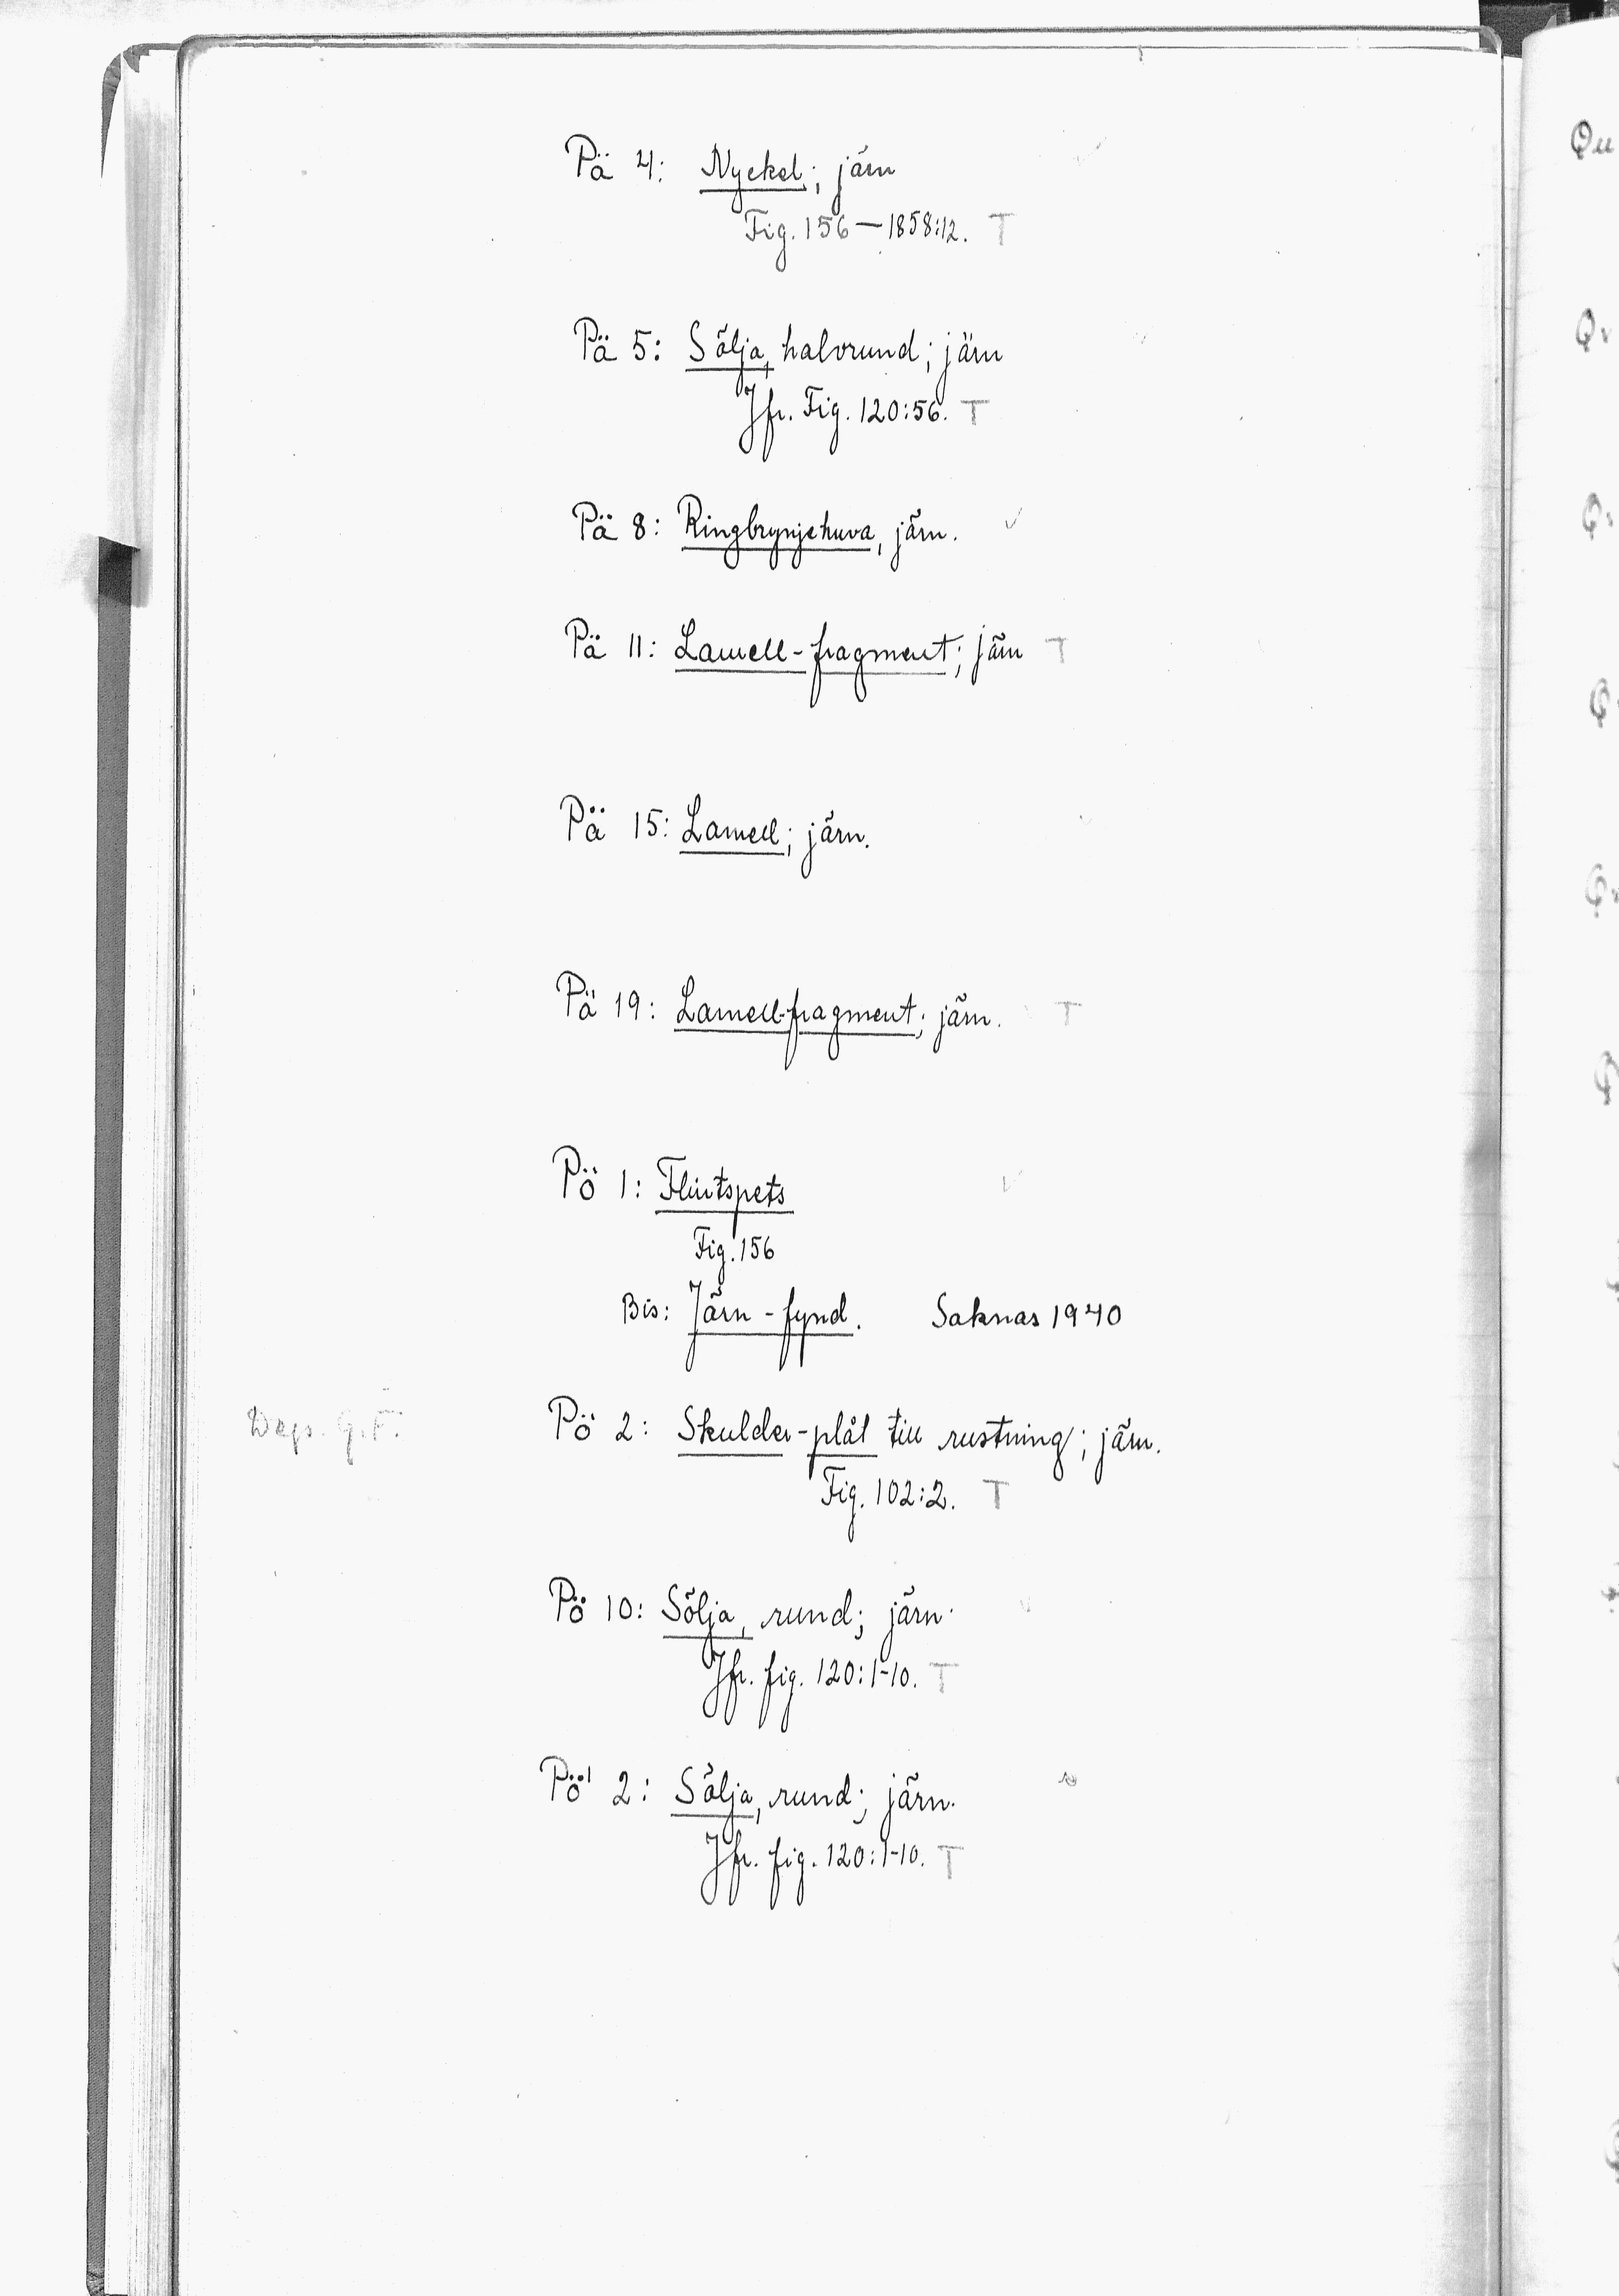 Pä 4: Nyckel; järn
Fig. 156 — 1858:12. T
Pä 5: Sölja, halvrund; järn
Jfr. Fig. 120:56. T
Pä 8: Ringbrynjehuva, järn. ✓
Pä 11: Lamell-fragment; järn T
Pä 15: Lamell; järn.
Pä 19: Lamell-fragment; järn. T
Pö 1: Flintspets ✓
Fig. 156
Bis: Järn-fynd. Saknas 1940
Pö 2: Skulder-plåt till rustning; järn.
Fig. 102:2. T
Pö 10: Sölja, rund; järn.
Jfr. fig. 120:1-10. T
Pö' 2: Sölja, rund; järn.
Jfr. fig. 120:1-10. T
Qu